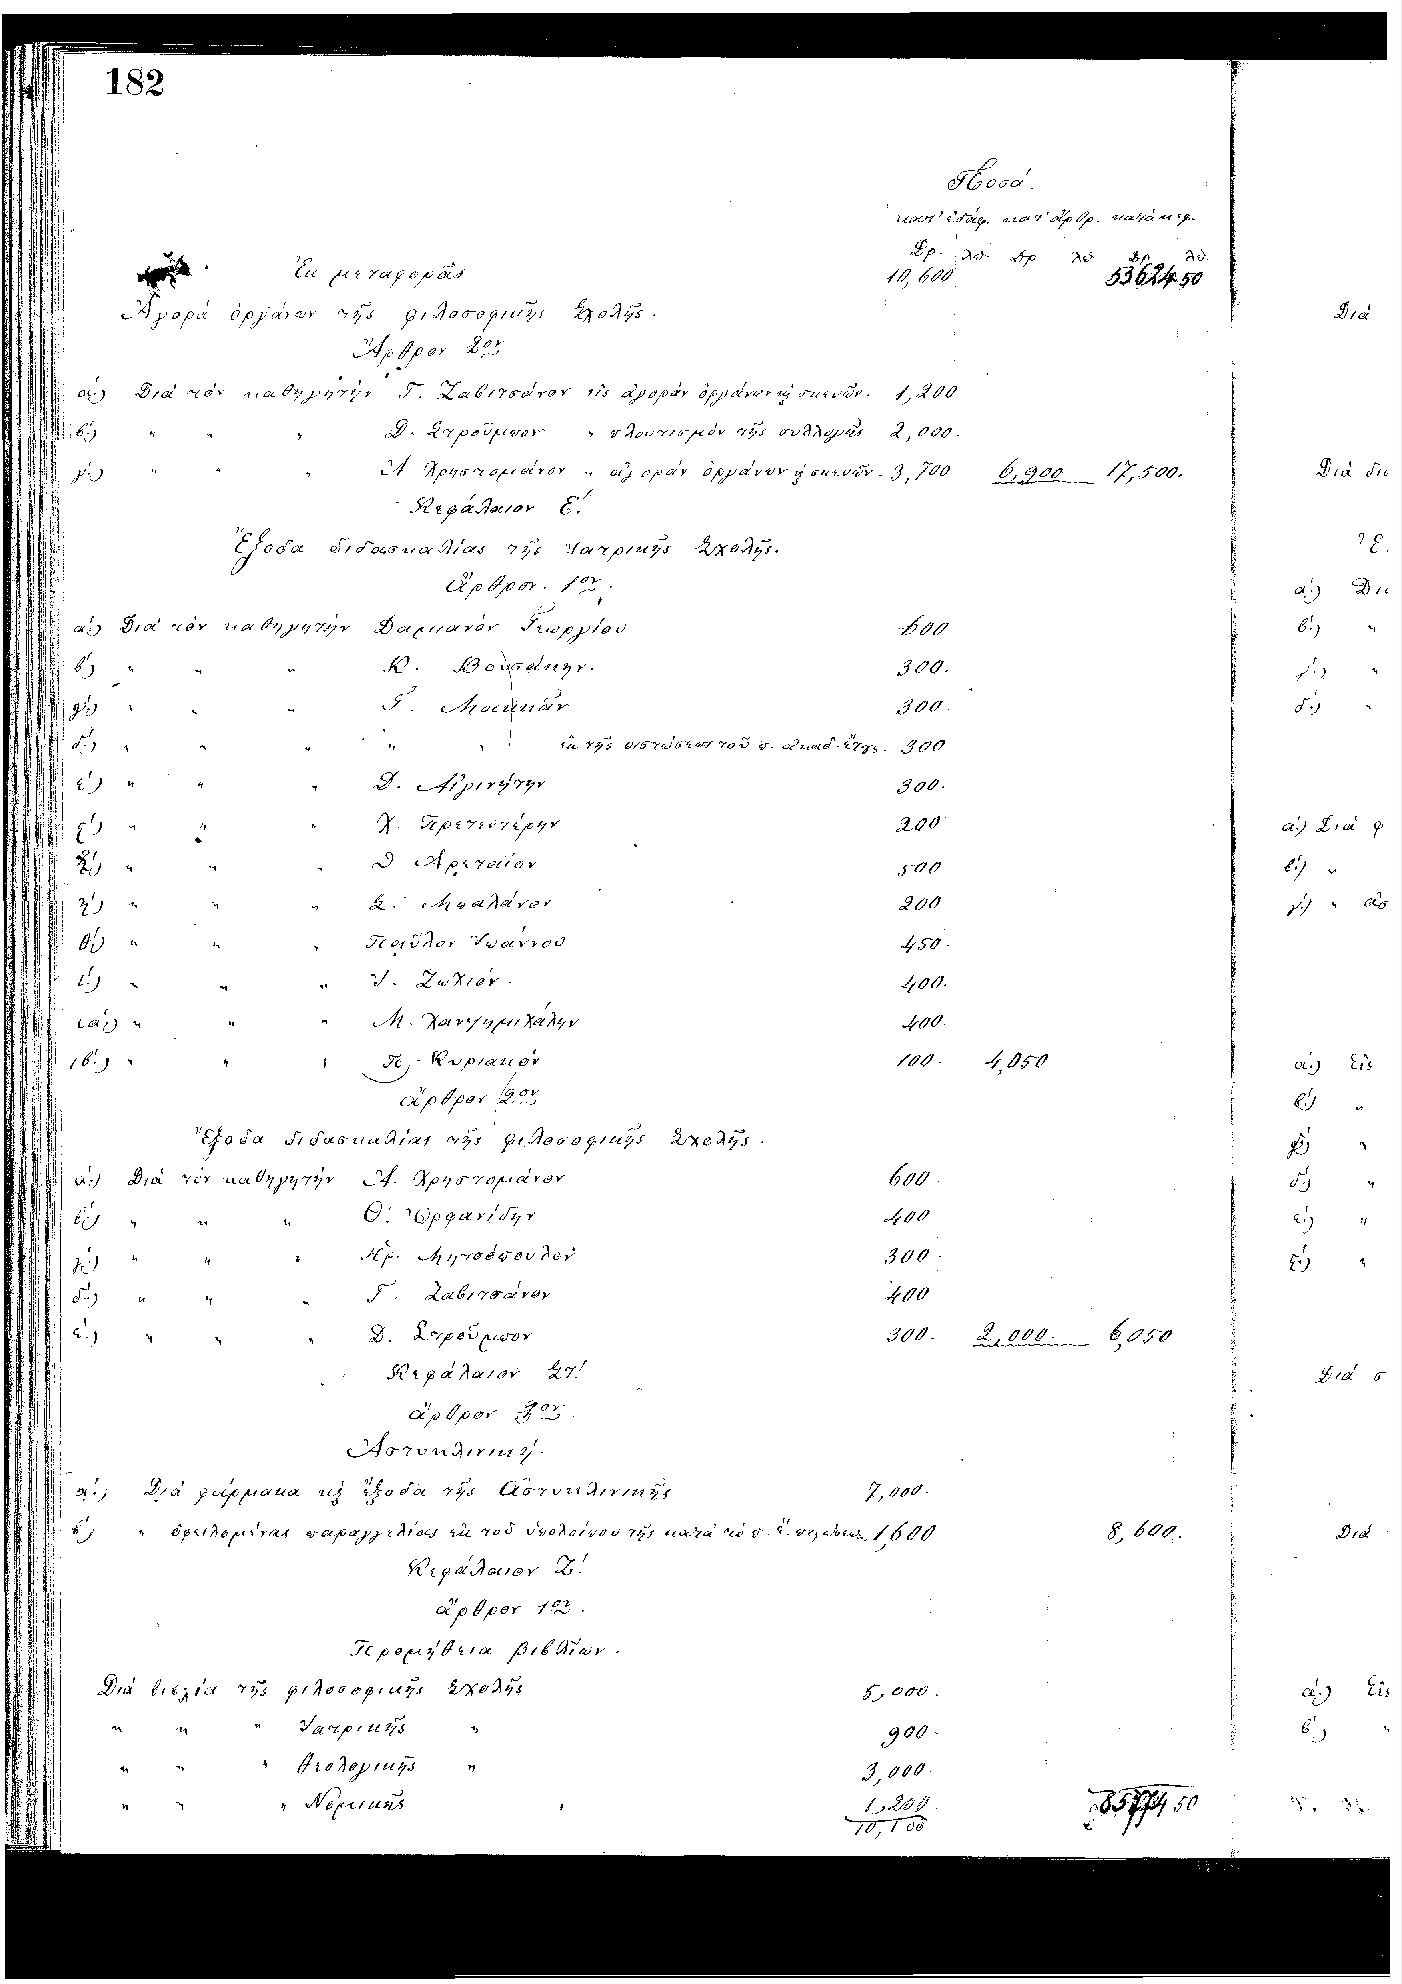 182
Ποσά.
κατ' ἐδάφ. κατ' ἄρθρ. κατὰ κεφ.
Δρ. λπ. Δρ λπ Δρ λπ.
Ἐκ μεταφορᾶς 10,600 53624 50
Ἀγορά ὀργάνων τῆς φιλοσοφικῆς Σχολῆς.
Ἄρθρον 2ον
α΄.) Διά τόν καθηγητήν Γ. Ζαβιτσάνον εἰς ἀγοράν ὀργάνων ἤ σκευῶν. 1,200
β΄.) " " " Δ. Στροῦμπον " πλουτισμόν τῆς συλλογῆς 2,000.
γ΄.) " " " Α Χρηστομάνον " ἀγοράν ὀργάνων ἤ σκευῶν. 3,700 6,900 17,500.
Κεφάλαιον Ε΄.
Ἔξοδα διδασκαλίας τῆς Ἰατρικῆς Σχολῆς.
Ἄρθρον. 1ον.
α΄.) Διά τόν καθηγητήν Δαμιανόν Γεωργίου 600
β΄) " " " Κ. Βουσάκην. 300.
γ΄.) " " " Γ. Μακκᾶν 300.
δ΄.) " " " " " ἐκ τῆς πιστώσεως τοῦ π. Ἀκαδ. ἔτους. 300
ε΄) " " " Δ. Αἰγινήτην 300.
ς΄) " " " Χ. Πρετεντέρην 200
ζ΄) " " " Θ Ἀρεταίον 500
η΄) " " " Σ. Μπαλάνον 200
θ΄) " " " Παῦλον Ἰωάννου 450.
ι΄.) " " " Ἰ. Ζωχιόν. 400.
ια΄.) " " " Μ. Χατζημιχάλην 400.
ιβ΄.) " " " Π. Κυριακόν 100. 4,050
ἄρθρον 2ον
Ἔξοδα διδασκαλίας τῆς φιλοσοφικῆς Σχολῆς.
α΄.) Διά τόν καθηγητήν Α. Χρηστομάνον 600.
β΄.) " " " Θ. Ὀρφανίδην 400
γ΄.) " " " Ἡρ. Μητσόπουλον 300.
δ΄.) " " " Γ. Ζαβιτσάνον 400
ε΄.) " " " Δ. Στροῦμπον 300. 2,000. 6,050
Κεφάλαιον Στ΄.
ἄρθρον 3ον.
Ἀστυκλινική.
α΄.) Διά φάρμακα κ ἔξοδα τῆς Ἀστυκλινικῆς 7,000.
β΄.) " ὀφειλομένας παραγγελίας ἐκ τοῦ ὑπολοίπου τῆς κατά τό π. ἔ. πιστώσεως 1,600 8,600.
Κεφάλαιον Ζ΄.
ἄρθρον 1ον.
Προμήθεια βιβλίων.
Διά βιβλία τῆς φιλοσοφικῆς Σχολῆς 5,000.
" " " Ἰατρικῆς " 900.
" " " Θεολογικῆς " 3,000.
" " " Νομικῆς " 1,200. 85774 50
10,100
Διά
Διά δι
Ἐ.
α΄.) Δι
β΄.) "
γ΄.) "
δ΄.) "
α΄.) Διά φ
β΄.) "
γ΄.) "
α΄.) Εἰς
β΄.) "
γ΄.) "
δ΄.) "
ε΄.) "
ς΄.) "
Διά σ
Διά
α΄.) Εἰς
β΄.) "